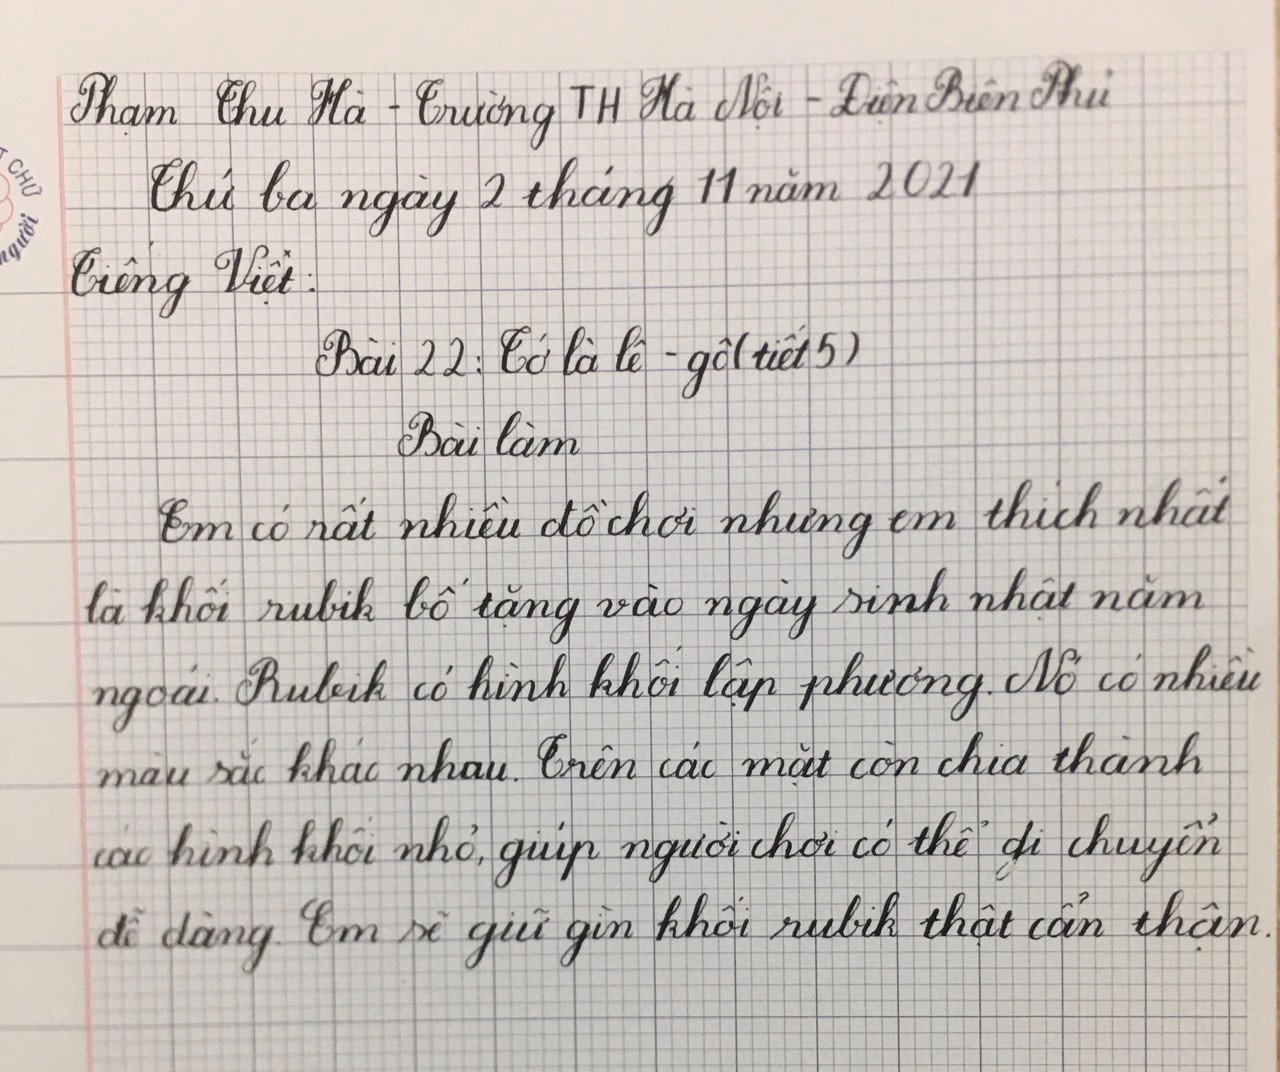 Phạm Thu Hà - Trường TH Hà Nội - Điện Biên Phủ
Thứ ba ngày 2 tháng 11 năm 2021
Tiếng Việt:
Bài 22: Tớ là lê - gô (tiết 5)
Bài làm
Em có rất nhiều đồ chơi nhưng em thích nhất
là khối rubik bố tặng vào ngày sinh nhật năm
ngoái. Rubik có hình khối lập phương. Nó có nhiều
màu sắc khác nhau. Trên các mặt còn chia thành
các hình khối nhỏ, giúp người chơi có thể di chuyển
dễ dàng. Em sẽ giữ gìn khối rubik thật cẩn thận.
CHỮ
người